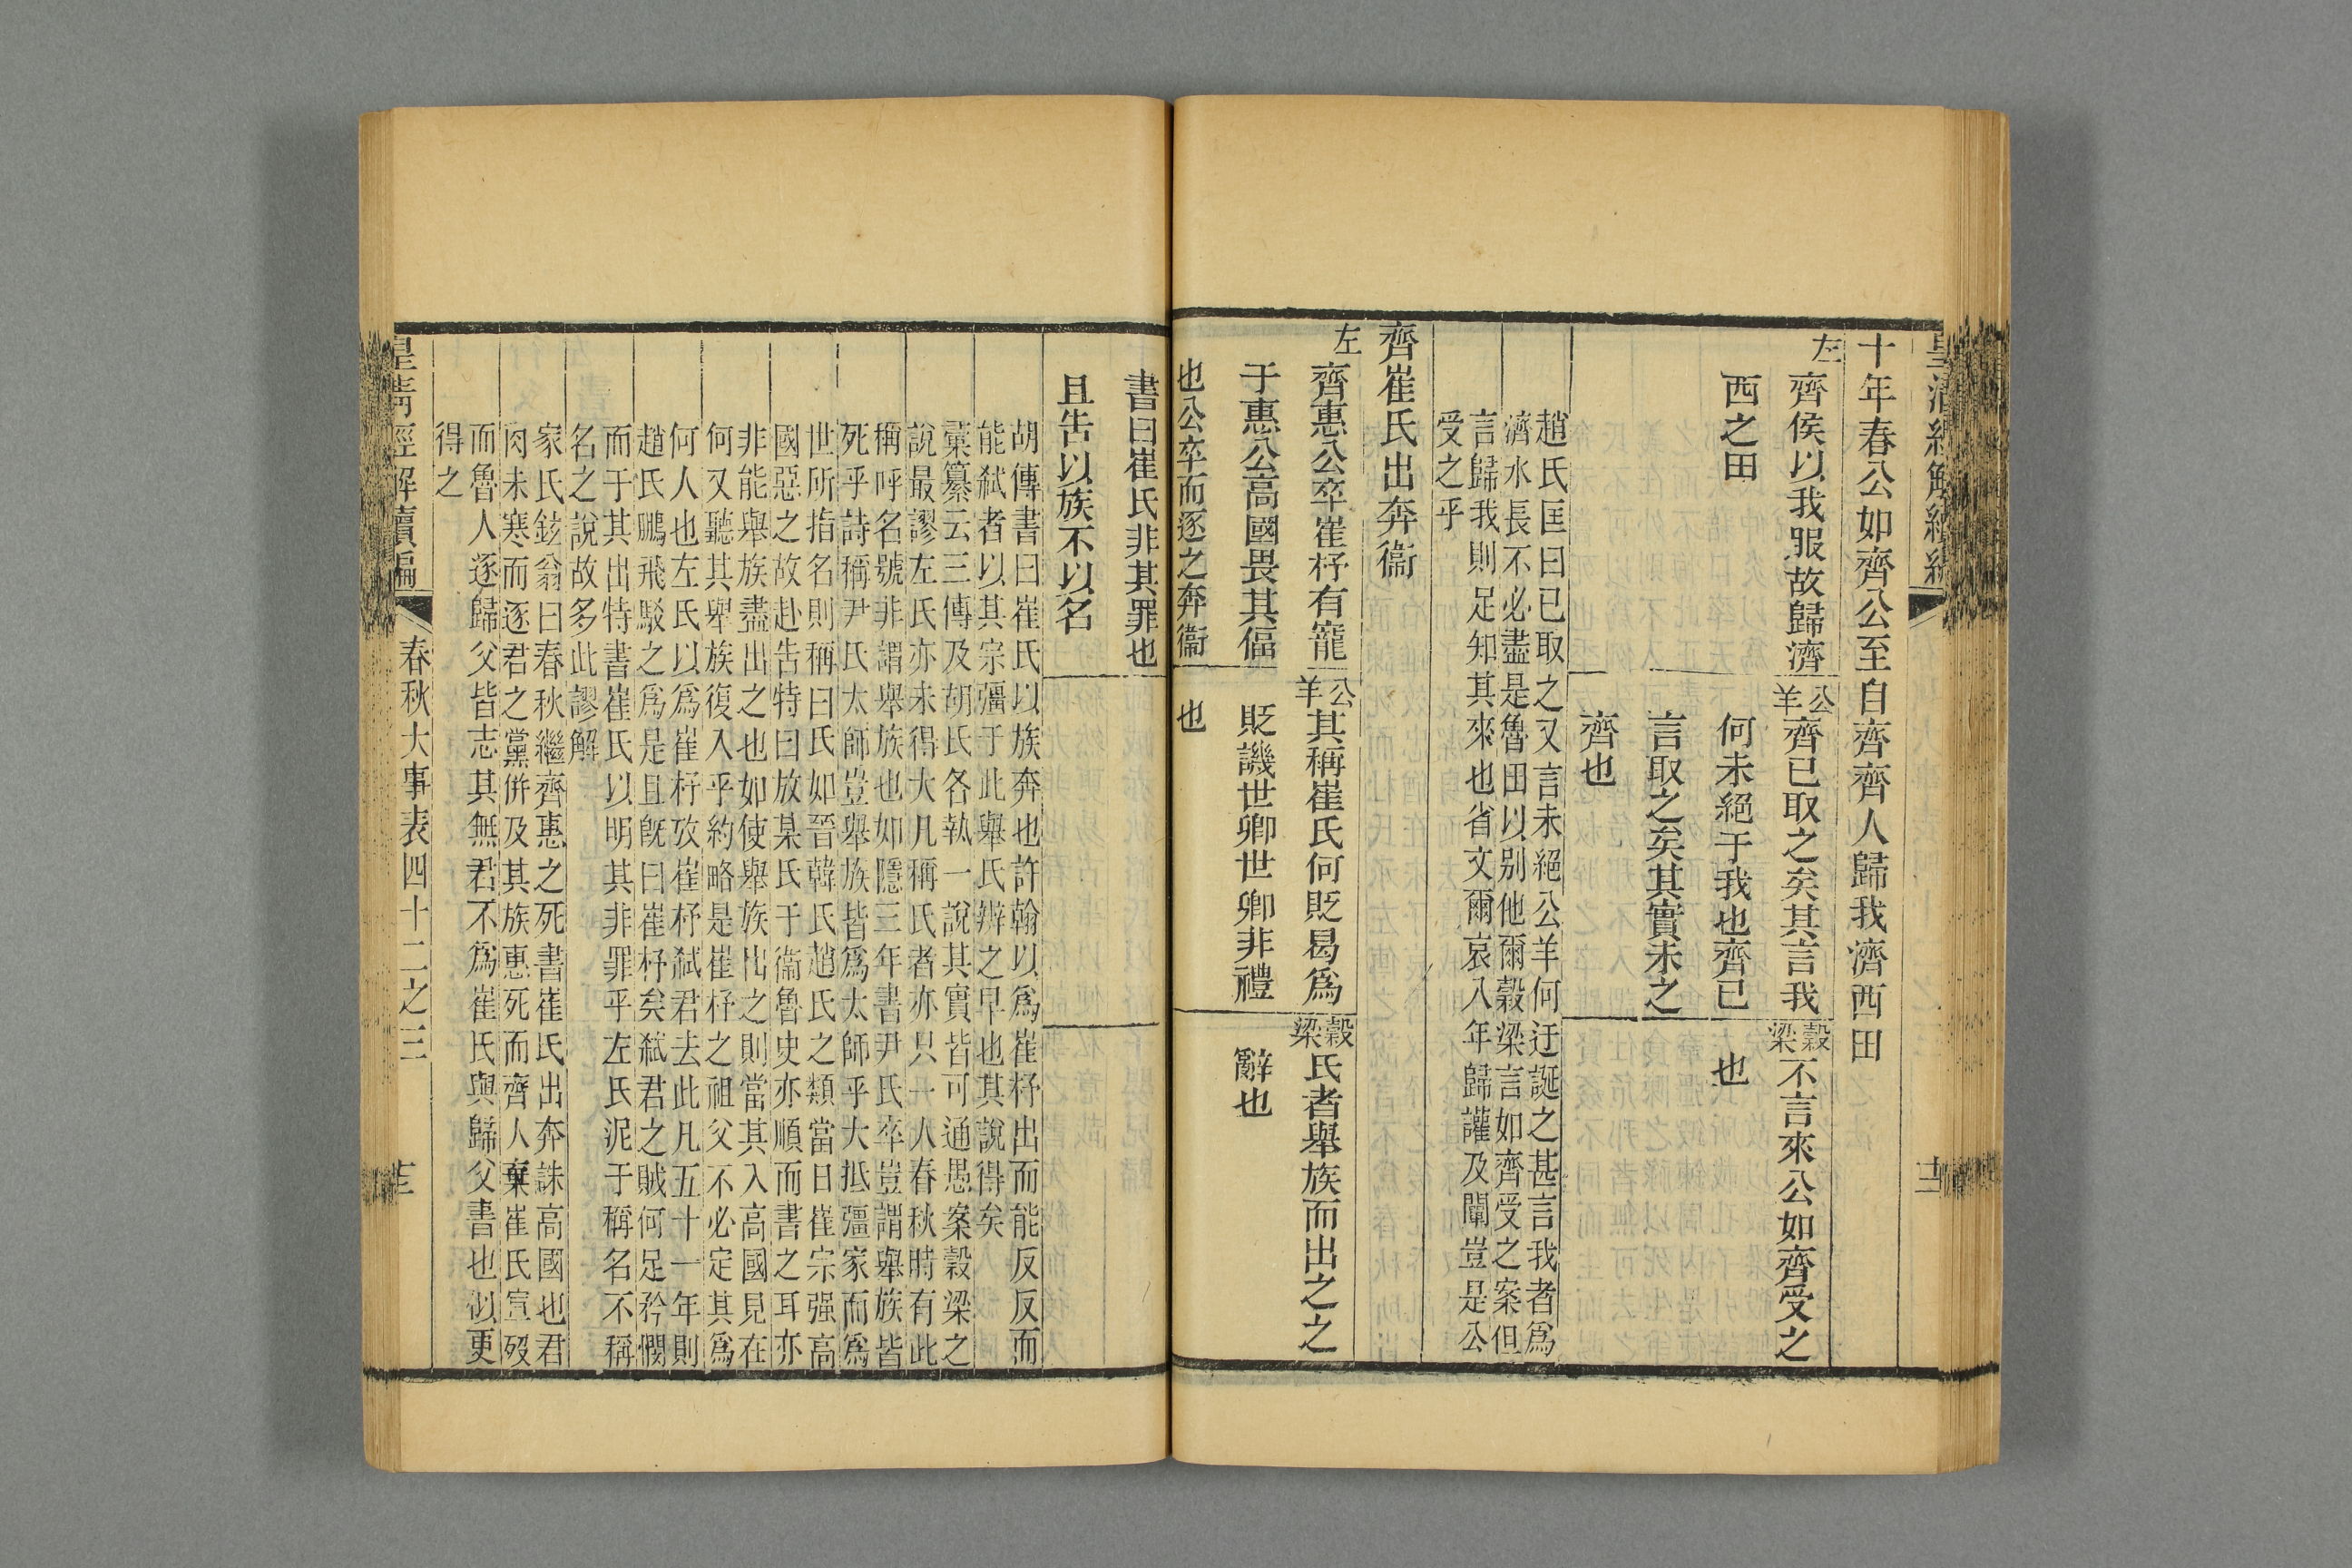 皇清經解續編
十年春公如齊公至自齊齊人歸我濟西田
左
齊侯以我服故歸濟
西之田
公羊
齊已取之矣其言我
何未絕于我也齊已
言取之矣其實未之
齊也
穀梁
不言來公如齊受之
也
趙氏匡曰已取之又言未絕公羊何迂誕之甚言我者爲
濟水長不必盡是魯田以别他爾穀梁言如齊受之案但
言歸我則足知其來也省文爾哀八年歸讙及闡豈是公
受之乎
齊崔氏出奔衞
左
齊惠公卒崔杼有寵
于惠公高國畏其偪
也公卒而逐之奔衞
書曰崔氏非其罪也
且告以族不以名
公羊
其稱崔氏何貶曷爲
貶譏世卿世卿非禮
也
穀梁
氏者舉族而出之之
辭也
胡傳書曰崔氏以族奔也許翰以爲崔杼出而能反反而
能弒者以其宗彊于此舉氏辨之早也其說得矣
彙纂云三傳及胡氏各執一說其實皆可通愚案穀梁之
說最謬左氏亦未得大凡稱氏者亦只一人春秋時有此
稱呼名號非謂舉族也如隱三年書尹氏卒豈謂舉族皆
死乎詩稱尹氏太師豈舉族皆爲太師乎大抵彊家而爲
世所指名則稱曰氏如晉韓氏趙氏之類當日崔宗强高
國惡之故赴告特曰放某氏于衞魯史亦順而書之耳亦
非能舉族盡出之也如使舉族出之則當其入高國見在
何又聽其舉族復入乎約略是崔杼之祖父不必定其爲
何人也左氏以爲崔杼攷崔杼弒君去此凡五十一年則
趙氏鵬飛駁之爲是且旣曰崔杼矣弒君之賊何足矜憫
而于其出特書崔氏以明其非罪乎左氏泥于稱名不稱
名之說故多此謬解
家氏鉉翁曰春秋繼齊惠之死書崔氏出奔誅高國也君
肉未寒而逐君之黨併及其族惠死而齊人棄崔氏宣殁
而魯人逐歸父皆志其無君不爲崔氏與歸父書也似更
得之
皇清經解續編
春秋大事表四十二之三